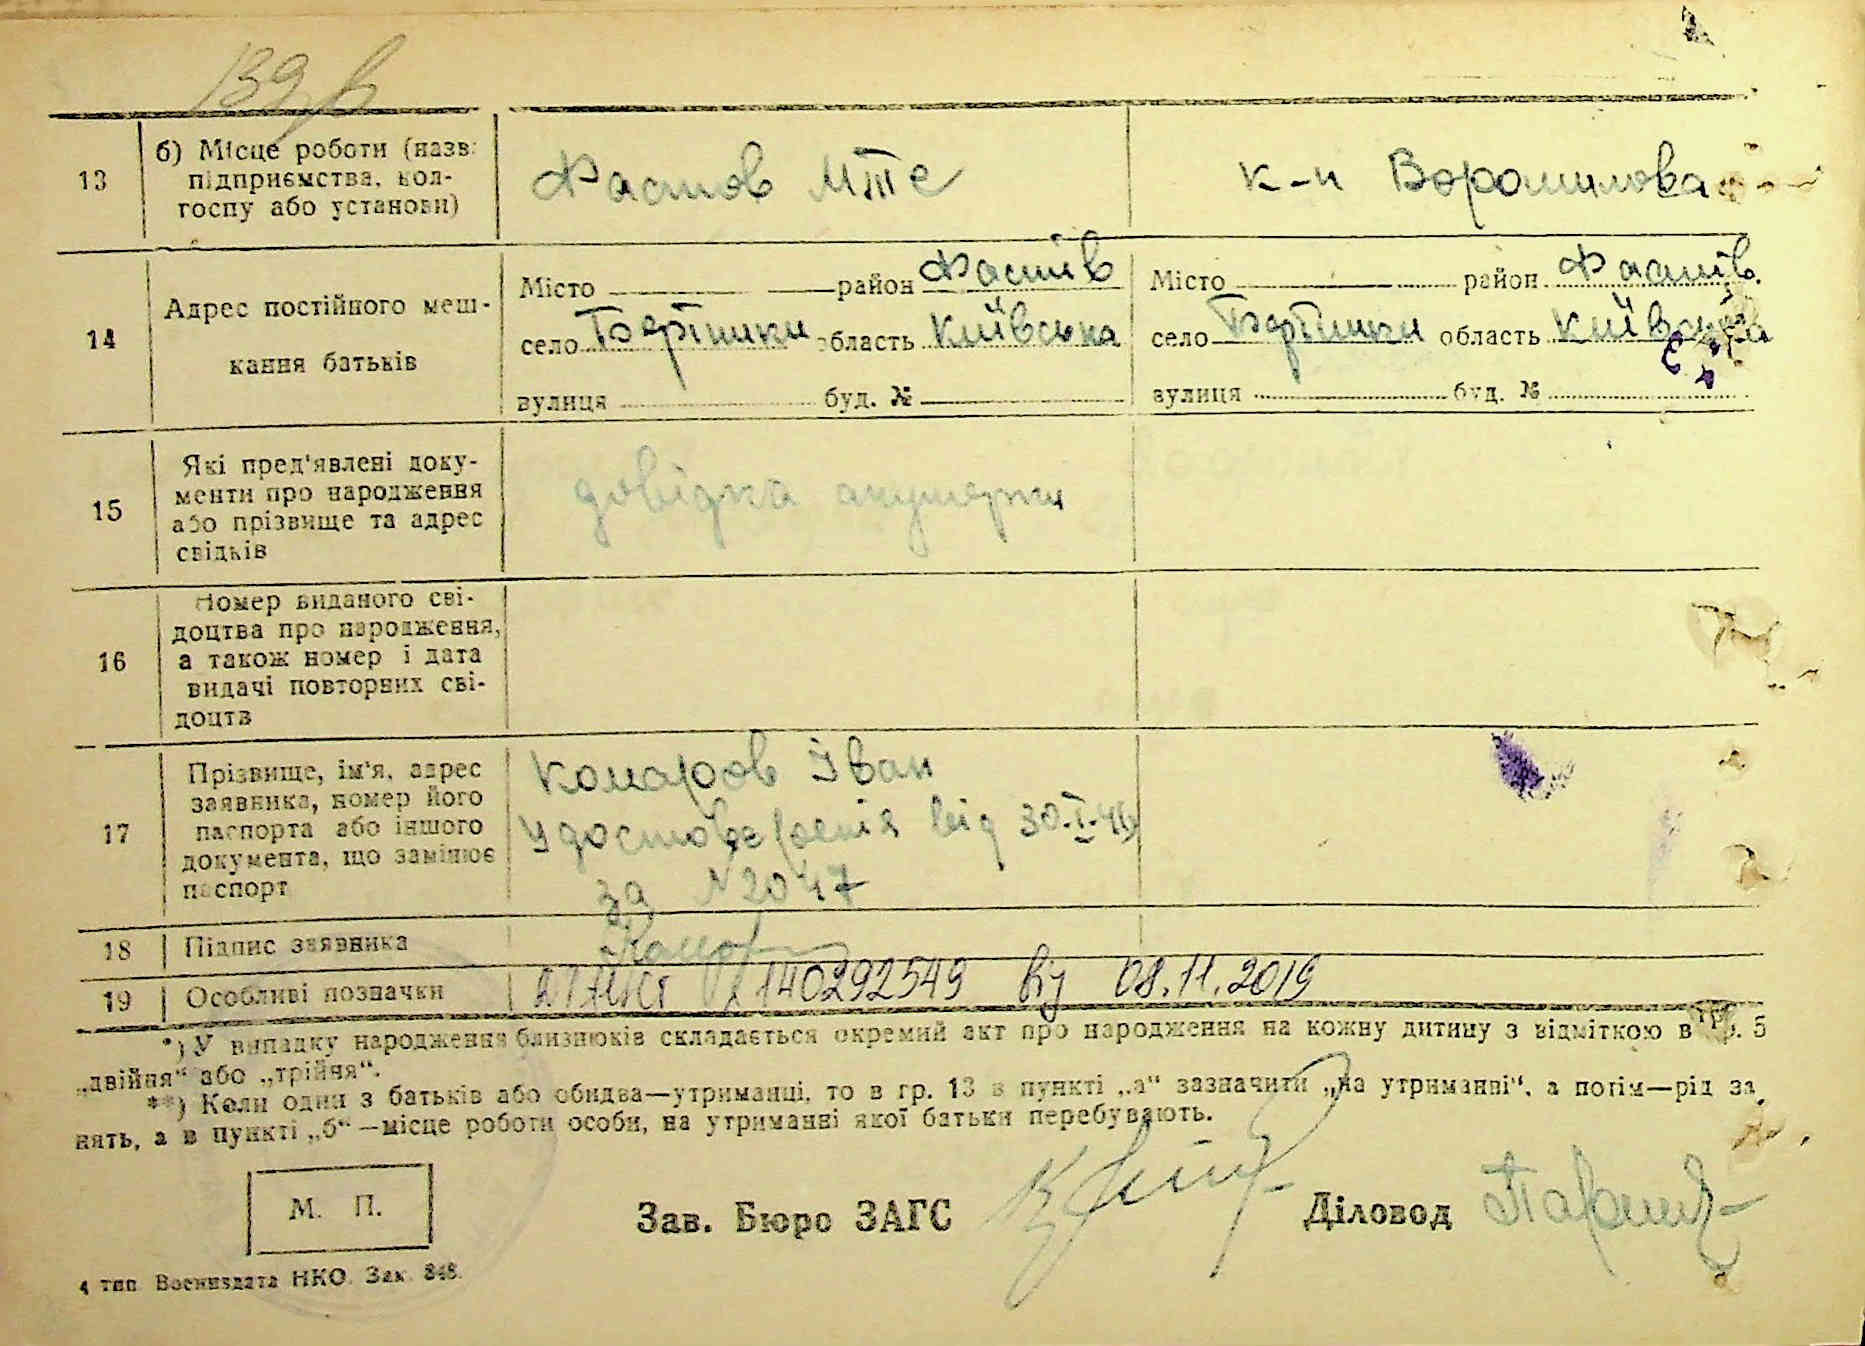 139 в
13
б) Місце роботи (назв:
підприємства, кол-
госпу або установи)
Фастов МТС
к-п Ворошилова
14
Адрес постійного меш-
кання батьків
Місто район Фастів
село область Київська
вулиця буд. №
Місто район Фастів
село область Київська
вулиця буд. №
15
Які пред'явлені доку-
менти про народження
або прізвище та адрес
свідків
довідка акушерки
16
Номер виданого сві-
доцтва про народження,
а також номер і дата
видачі повторних сві-
доцтв
17
Прізвище, ім'я, адрес
заявника, номер його
паспорта або іншого
документа, що замінює
паспорт
Комаров Іван
Удостоверенія від 30.I.
за №2047
18 Підпис заявника
19 Особливі позначки
140292549 від 08.11.2019
*) У випадку народження близнюків складається окремий акт про народження на кожну дитину з відміткою в гр. 5
„двійня“ або „трійня“.
**) Коли один з батьків або обидва—утриманці, то в гр. 13 в пункті „а“ зазначити „на утриманні“, а потім—рід за
нять, а в пункті „б“—місце роботи особи, на утриманні якої батьки перебувають.
М. П.
Зав. Бюро ЗАГС
Діловод
4 тип. Воениздата НКО. Зак. 848.